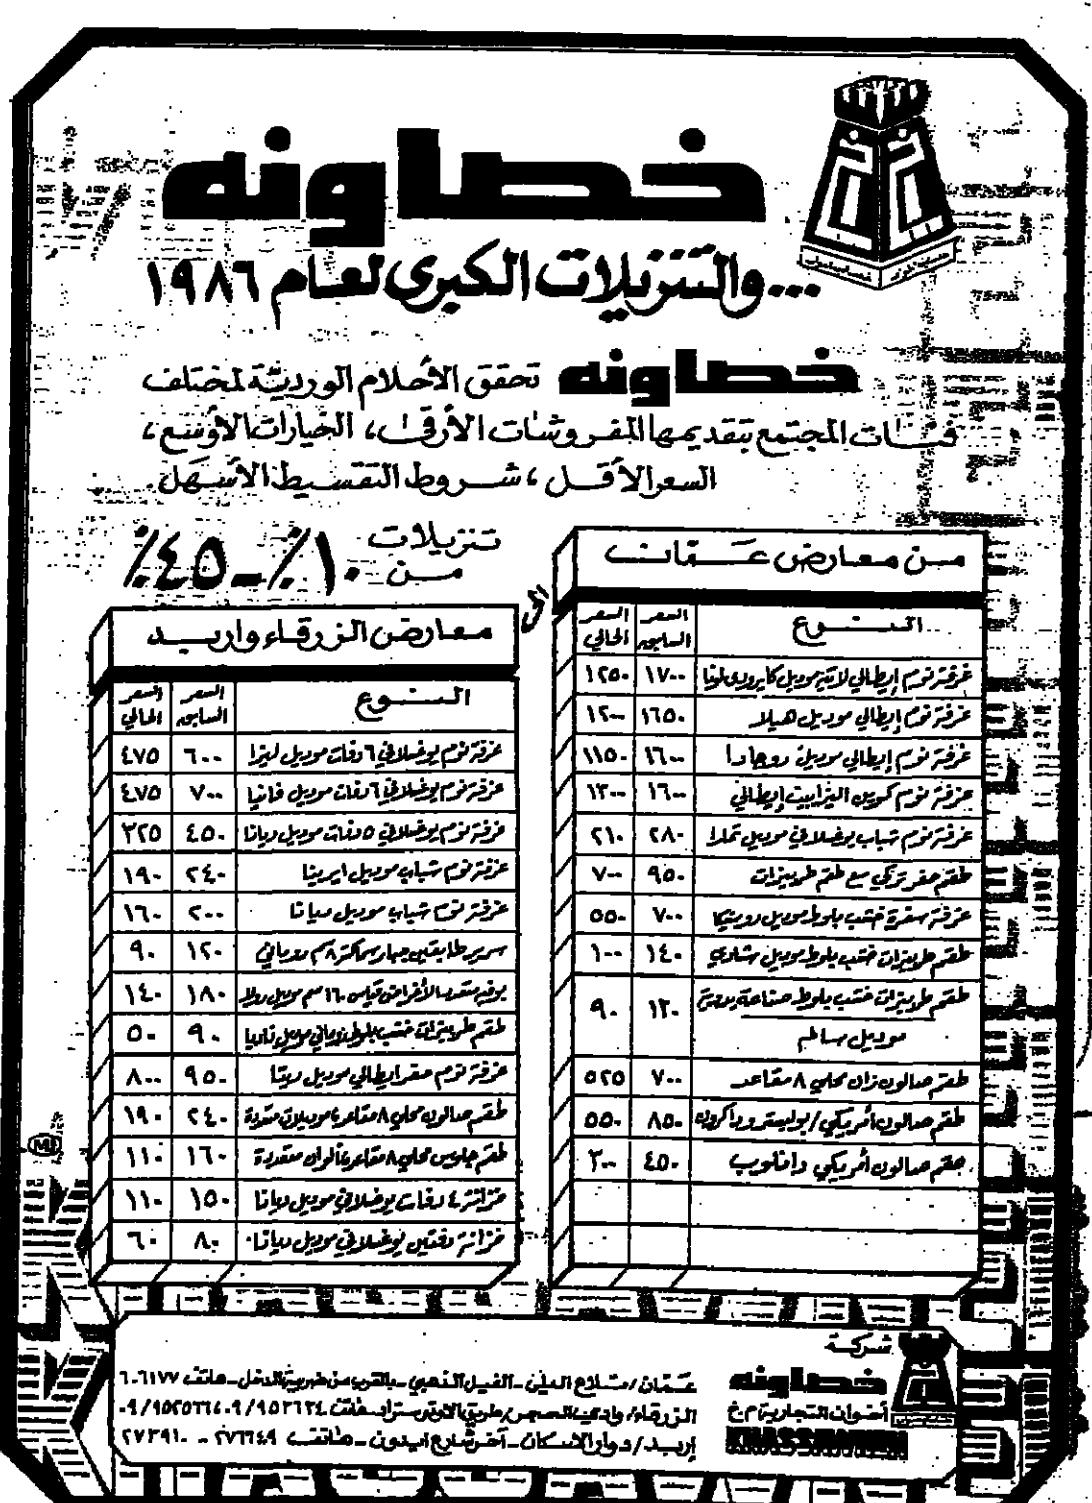 خصاونه
...والتنزيلات الكبرى لعام ١٩٨٦
خصاونه تحقق الأحلام الوردية لمختلف
فئات المجتمع بتقديمها المفروشات الأرقى، الخيارات الأوسع،
السعر الأقل، شروط التقسيط الأسهل.
تنزيلات من ١٠٪ - ٤٥٪
من معارض عمان
النوع السعر السابق السعر الحالي
غرفة نوم إيطالي موديل ١٧٠٠ ١٢٥٠
غرفة نوم إيطالي موديل هيلا ١٦٥٠ ١٢٠٠
غرفة نوم إيطالي موديل ١٦٠٠ ١١٥٠
غرفة نوم كوين اليزابيت إيطالي ١٦٠٠ ١٢٠٠
غرفة نوم شباب يوغسلافي موديل تمارا ٢٨٠ ٢١٠
طقم حفر تركي مع طقم طربيزات ٩٥٠ ٧٠٠
غرفة سفرة خشب بلوط موديل ٧٠٠ ٥٥٠
طقم طربيزات خشب بلوط موديل ١٤٠ ١٠٠
طقم طربيزات خشب بلوط صناعة يدوية ١٢٠ ٩٠
موديل
طقم صالون زان محلي ٨ مقاعد ٧٠٠ ٥٢٥
طقم صالون أمريكي / بوليستر وداكرون ٨٥٠ ٥٥٠
طقم صالون أمريكي ٤٥٠ ٣٠٠
معارض الزرقاء واربد
النوع السعر السابق السعر الحالي
غرفة نوم يوغسلافي ٦ دفات موديل ليزا ٦٠٠ ٤٧٥
غرفة نوم يوغسلافي ٦ دفات موديل فانيا ٧٠٠ ٤٧٥
غرفة نوم يوغسلافي ٥ دفات موديل ديانا ٤٥٠ ٣٢٥
غرفة نوم شباب موديل ايرينا ٢٤٠ ١٩٠
غرفة نوم شباب موديل ديانا ٢٠٠ ١٦٠
سرير طابقين ١٢٠ ٩٠
بوفيه متعدد الأغراض قياس ١٦٠ سم موديل ١٨٠ ١٤٠
طقم طربيزات خشب بلوط روماني موديل ٩٠ ٥٠
غرفة نوم حفر ايطالي موديل ريتا ٩٥٠ ٨٠٠
طقم صالون محلي ٨ مقاعد بموديلات متعددة ٢٤٠ ١٩٠
طقم جلوس محلي ٨ مقاعد بألوان متعددة ١٦٠ ١١٠
خزانة ٤ دفات يوغسلافي موديل ديانا ١٥٠ ١١٠
خزانة دفتين يوغسلافي موديل ديانا ٨٠ ٦٠
شركة
خصاونه
أخوان التجارية م.خ
عمان / شارع - الفيل الذهبي - بالقرب من ضريبة الدخل - هاتف ٦٠٦١٧٧
الزرقاء /
إربد / دوار الاسكان - آخر شارع ايدون - هاتف ٢٧٦٦٤٩ - ٢٧٣٩١٠